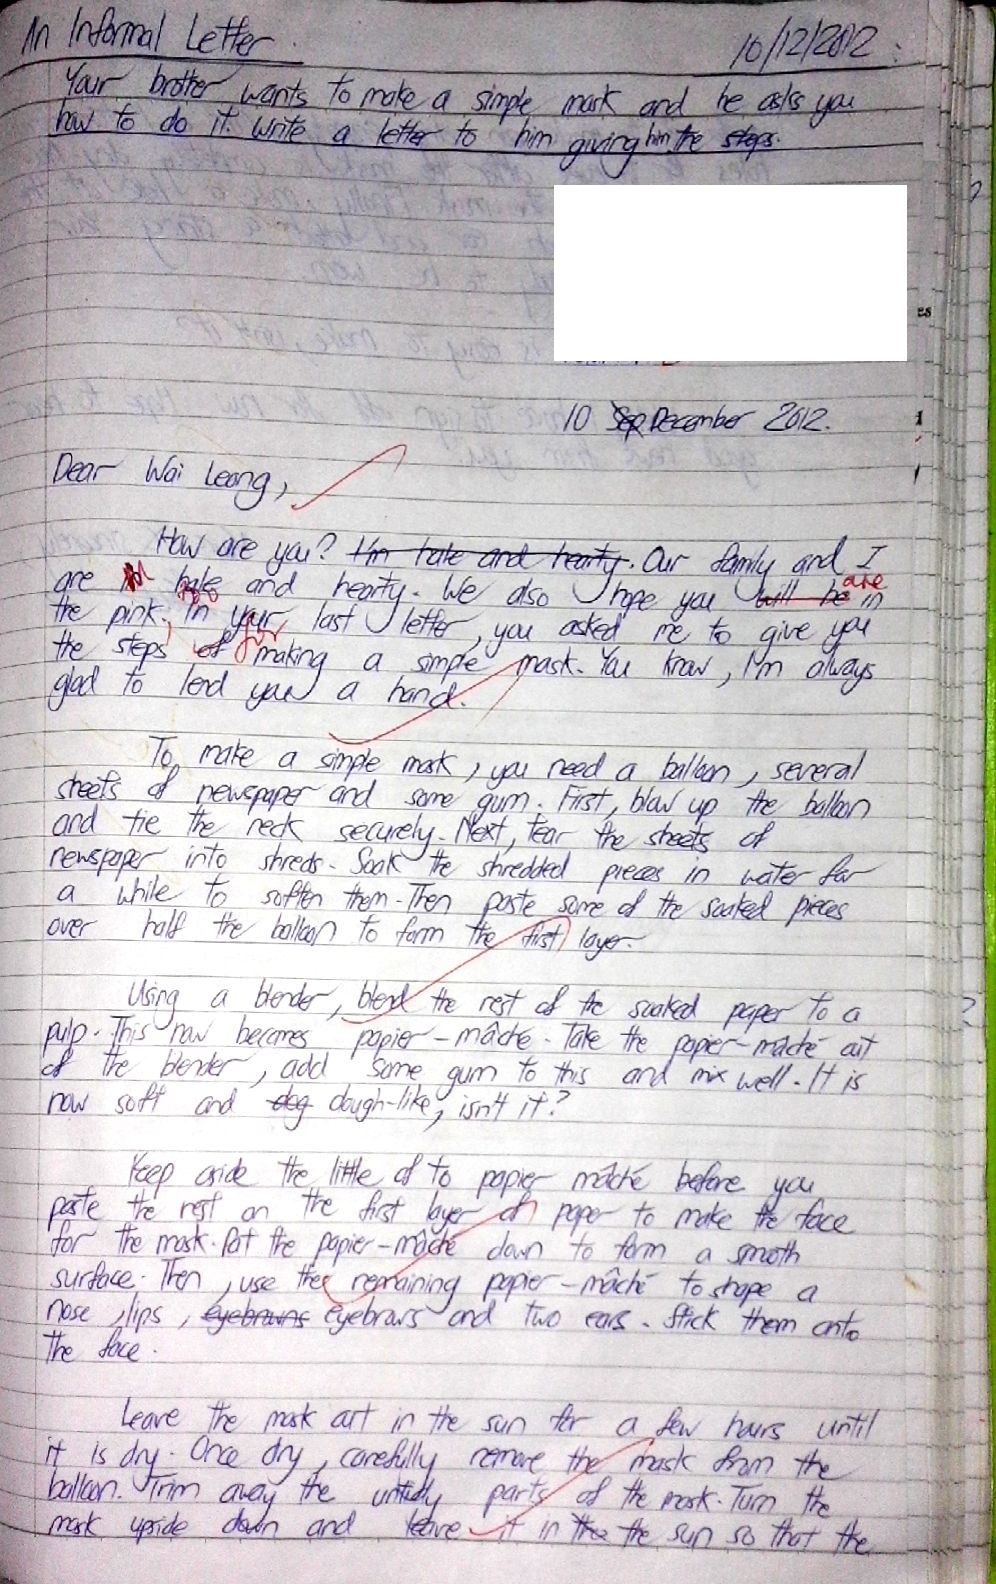 An Informal Letter.
10/12/2012.
Your brother wants to make a simple mask and he asks you
how to do it. Write a letter to him giving him the steps.
10 Sep December 2012.
Dear Wai Leong,
How are you? I'm hale and hearty. Our family and I
are hale and hearty. We also hope you will be are in
the pink. In your last letter, you asked me to give you
the steps of for making a simple mask. You know, I'm always
glad to lend you a hand.
To make a simple mask, you need a balloon, several
sheets of newspaper and some gum. First, blow up the balloon
and tie the neck securely. Next, tear the sheets of
newspaper into shreds. Soak the shredded pieces in water for
a while to soften them. Then paste some of the soaked pieces
over half the balloon to form the first layer.
Using a blender, blend the rest of the soaked paper to a
pulp. This now becomes papier-mâché. Take the papier-mâché out
of the blender, add some gum to this and mix well. It is
now soft and dog dough-like, isn't it?
Keep aside the little of to papier mâché before you
paste the rest on the first layer of paper to make the face
for the mask. Pat the papier-mâché down to form a smooth
surface. Then, use the remaining papier-mâché to shape a
nose, lips, eyebrowns eyebrows and two ears. Stick them onto
the face.
Leave the mask out in the sun for a few hours until
it is dry. Once dry, carefully remove the mask from the
balloon. Trim away the untidy parts of the mask. Turn the
mask upside down and leave it in the the sun so that the